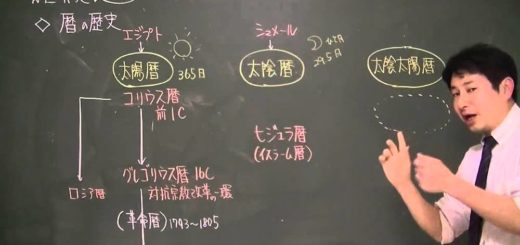 ◇ 暦の歴史
エジプト
太陽暦
365日
ユリウス暦
前1C
ロシア暦
グレゴリウス暦 16C
対抗宗教改革の一環
(革命暦) 1793〜1805
シュメール
太陰暦
29.5日
ヒジュラ暦
(イスラーム暦)
太陰太陽暦